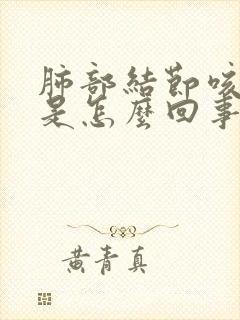 肺部結節咳
是怎麼回事
黃青真